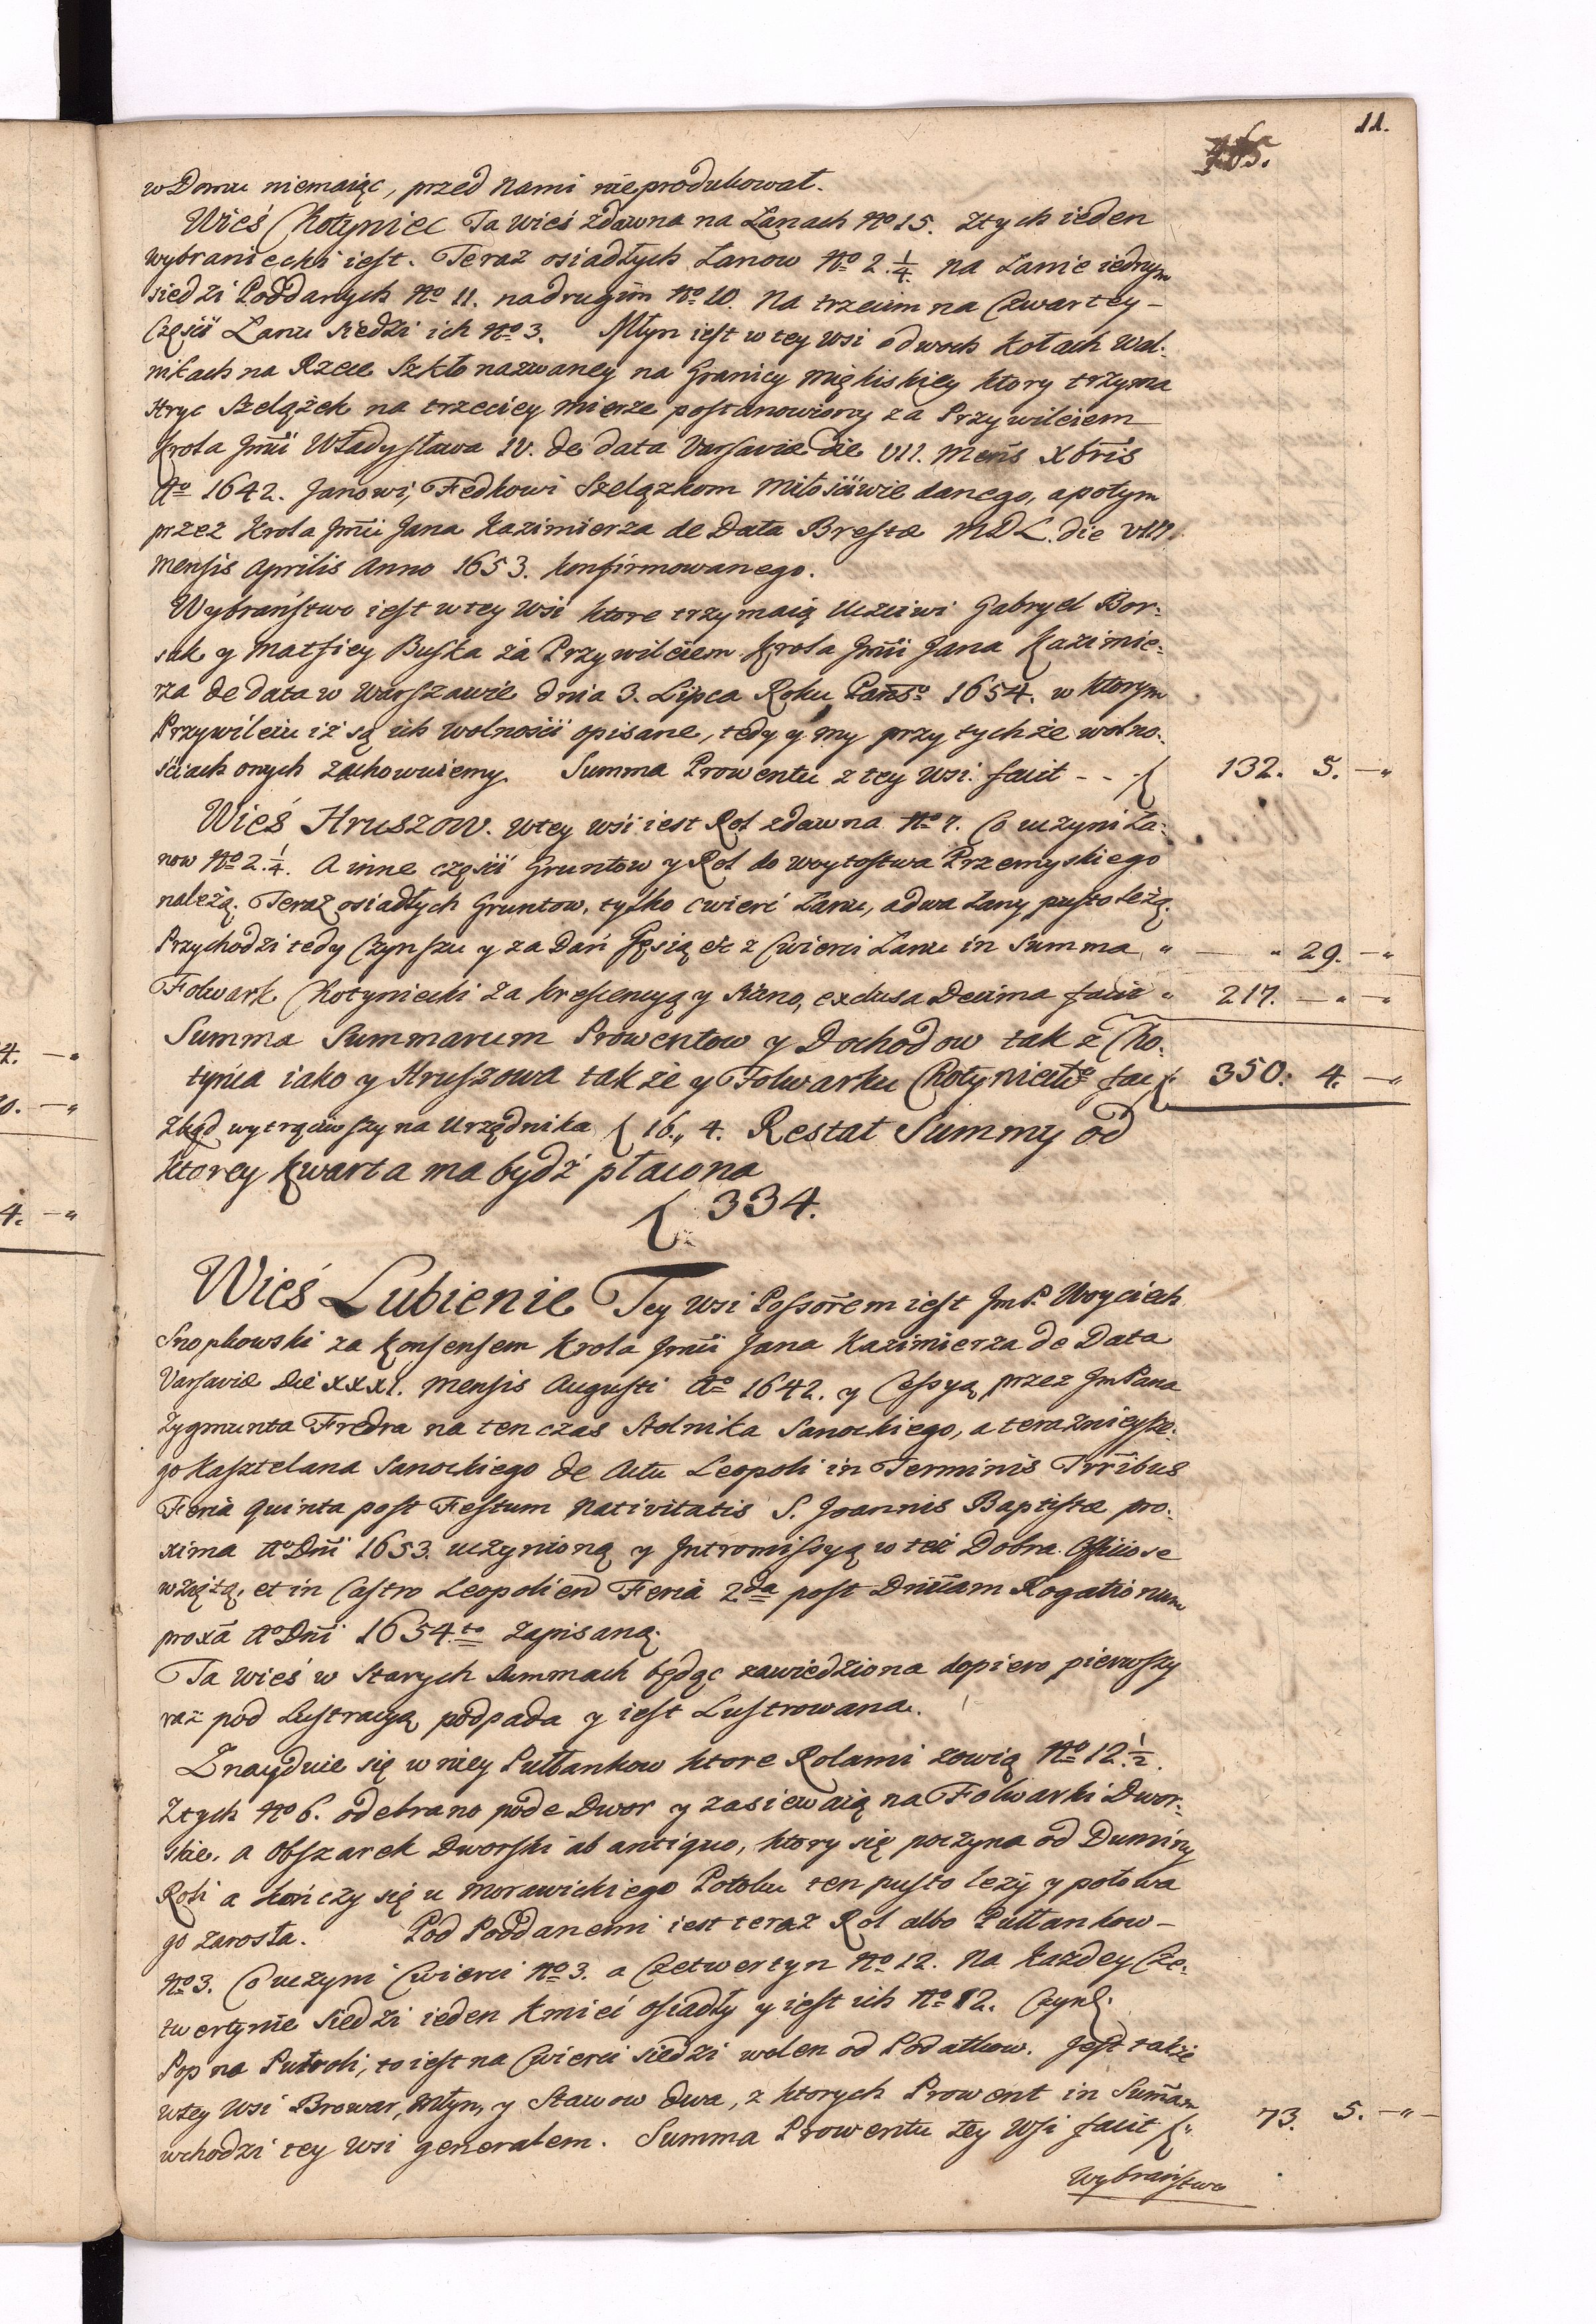 11.
w Domu niemaiąc, przed Nami nieprodukował.
Wieś Chotyniec Ta wieś zdawna na Łanach No 15. Ztych ieden
wybraniecki iest. Teraz osiadłych Łanow No 2. 1/4. na Łanie iednym
siedzi Poddanych No 11. nadrugim No 10. Na trzecim na Czwartey –
Części Łanu siedzi ich No 3. Młyn iest w tey Wsi o dwoch Kołach Wal:
nikach na Rzece Szkło nazwaney na Granicy Miękiskiey ktory trzyma
Hryc Szelążek na trzeciey Mierze postanowiony za Przywileiem
Krola Jmci Władysława IV. de data Varsaviæ die VII. Mens Xbris
Ao 1642. Janowi, Fedkowi Szelązkom Miłościwie danego, apotym
przez Krola Jmci Jana Kazimierza de Data Brestæ MDL. die VIII.
Mensis Aprilis Anno 1653. konfirmowanego.
Wybraństwo iest wtey Wsi ktore trzymaią Uczciwi Gabryel Bor:
suk y Matfiey Buska za Przywileiem Krola Jmci Jana Kazimie:
rza de data w Warszawie dnia 3. Lipca Roku Pańso 1654. w ktorym
Przywileiu iż są ich Wolności opisane, tedy y my przy tychże wolno:
ściach onych zachowuiemy. Summa Prowentu z tey Wsi. facit - - ƒ 132. 5. —„
Wieś Hruszow. Wtey wsi iest Rol zdawna No 7. Co uczyni Ła:
now No 2. 1/4. A inne części Gruntow y Rol do woytostwa Przemyskiego
należą. Teraz osiadłych Gruntow, tylko cwierć Łanu, adwa Łany pusto leżą.
Przychodzi tedy Czynszu y za Dań Gęsią etc z Cwierci Łanu in Summa „ — „ 29. —„
Folwark Chotyniecki za krescencyą y Siano, exclusa Decima facit „ 217. —„ —„
Summa Summarum Prowentow y Dochodow tak z Cho:
tyńca iako y Hruszowa także y Folwarku Chotyniecko fac ƒ. 350. 4. —„
Zkąd wytrąciwszy na Urzędnika ƒ 16„ 4. Restat Summy od
ktorey kwarta ma bydź płacona
ƒ 334.
Wieś Lubienie Tey Wsi Possorem iest JmP. Woyciech
Snopkowski za Konsensem Krola Jmci Jana Kazimierza de Data
Varsaviæ die XXXI. Mensis Augusti Ao 1642. y Cessyą przez JmPana
Zygmunta Fredra na ten czas Stolnika Sanockiego, a teraznieysze:
go Kasztelana Sanockiego de Actu Leopoli in Terminis Trribus
Feria quinta post Festum Nativitatis S. Joannis Baptistæ pro:
xima Ao Dni 1653. uczynioną y Intromissyą w też Dobra Officiose
wziętą, et in Castro Leopolien Feria 2da post Dnicam Rogationum
proxa Ao Dni 1654.to Zapisaną.
Ta wieś w Starych Summach będąc zawiedziona dopiero pierwszy
raz pod Lustracyą podpada y iest Lustrowana.
Znayduie się w niey Pułłankow ktore Rolami zowią No 12. 1/2.
Ztych No 6. odebrano pode Dwor y zasiewaią na Folwarki Dwor:
skie, a Obszarek Dworski ab antiquo, ktory się poczyna od Duminy
Roli a kończy się u Morawickiego Potoku ten pusto leży y połowa
go zarosła. Pod Poddanemi iest teraz Rol albo Pułłankow –
No 3. Co uczyni Cwierci No 3. a Czetwertyn No 12. Na każdey Cze:
twertynie siedzi ieden Kmieć osiadły y iest ich No 12.
Pop na Pułroli, to iest na Cwierci siedzi wolen od Podatkow. Jest także
wtey Wsi Browar, Młyn, y Stawow dwa, z ktorych Prowent in Summam
wchodzi tey Wsi generalem. Summa Prowentu tey Wsi facit ƒ„ 73. 5. —„—
Wybraństwo